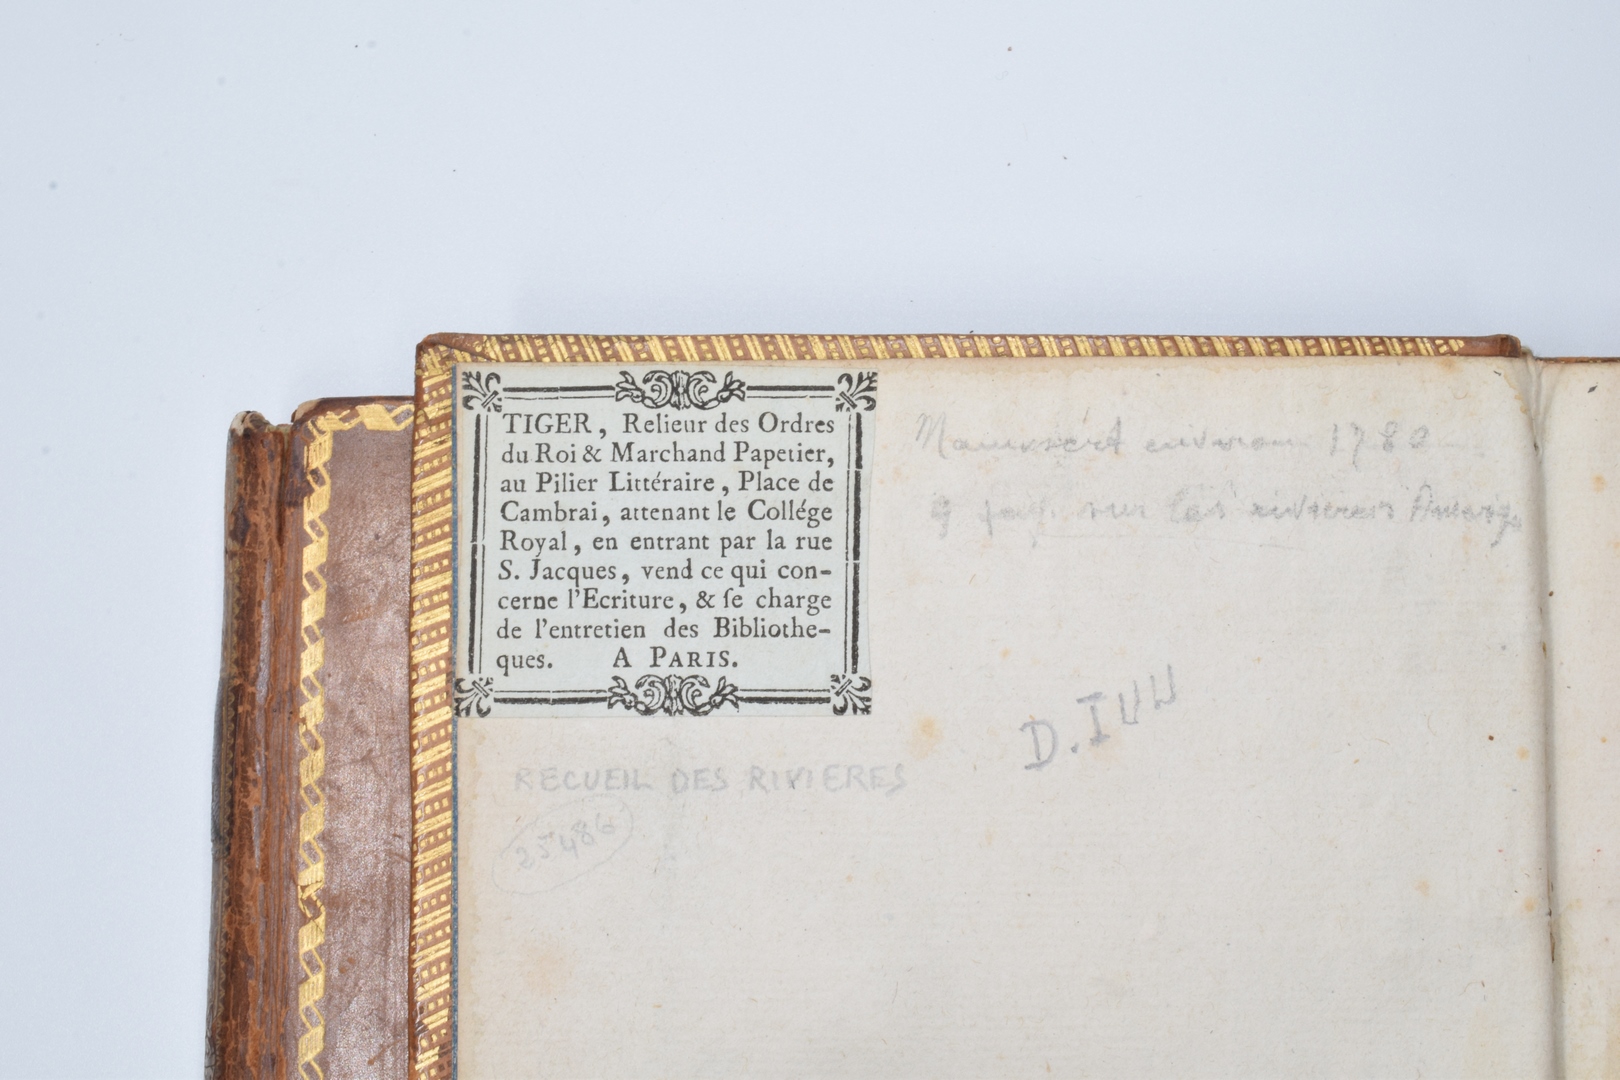 TIGER, Relieur des Ordres
du Roi & Marchand Papetier,
au Pilier Littéraire, Place de
Cambrai, attenant le Collége
Royal, en entrant par la rue
S. Jacques, vend ce qui con-
cerne l'Ecriture, & ſe charge
de l'entretien des Bibliothe-
ques. A PARIS.
Manuscrit environ 1780
sur les rivieres
D.I
RECUEIL DES RIVIERES
25486